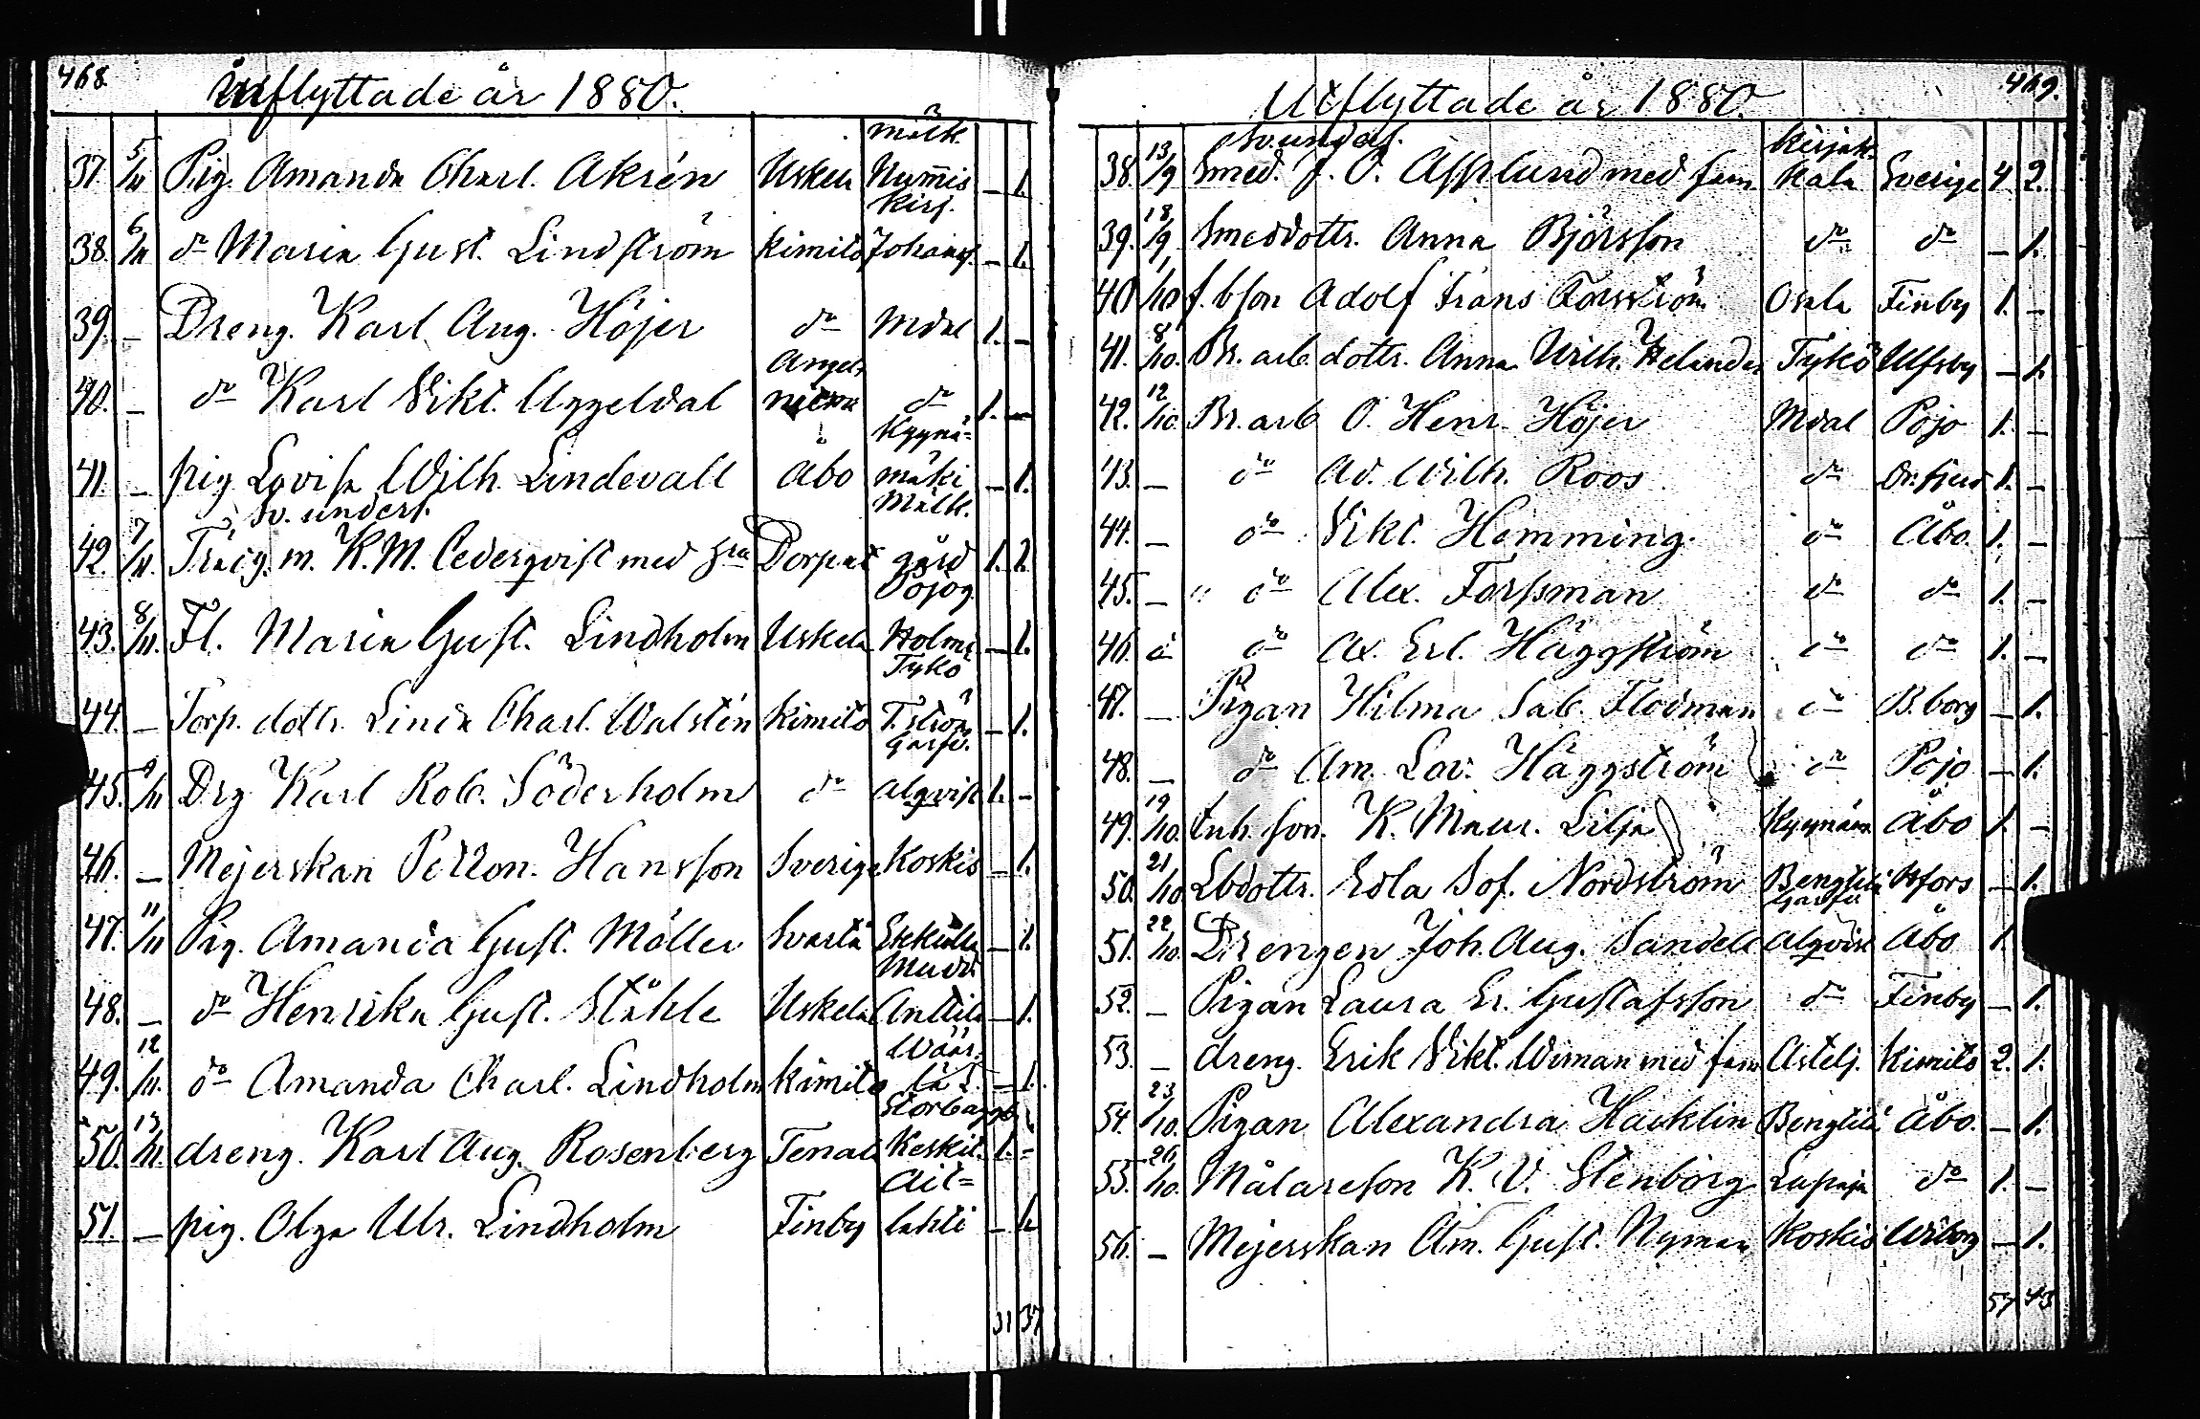 468.
Inflyttade år 1880.
37. 5/11 Pig. Amanda Charl. Akrén Uskela Nummis mälk. — 1.
38. 6/11 do Maria Gust. Lindström Kimito Johannis. Kirj. — 1.
39. — Dreng. Karl Aug. Höjer do Mdal 1. —
40. — do Karl Vikt. Uggeldal Angelniemi do 1. —
41. — pig Lovisa Wilh. Lindevall Åbo Kyynä=mäki — 1.
Sv. unders.
42. 7/11. Träeg. m. K. M. Cederqvist med hru Dorpat Mälk. gård 1. 1.
43. 8/11. Fl. Maria Gust. Lindholm Uskela Holms — 1.
44. — Torp. dottr. Linda Charl. Walstén Kimito Tykö T.ström — 1.
45. 9/11 Drg Karl Rob. Söderholm do Alqvist 1. —
46. — Mejerskan Petron. Hansson Sverige Koskis — 1.
47. 11/11 Pig. Amanda Gust. Möller Svartå — 1.
48. — do Henrika Gust. Ståhle Uskela Anttila — 1.
49. 12/11. do Amanda Charl. Lindholm Kimito — 1.
50. 13/11. dreng. Karl Aug. Rosenberg Tenala Keskit. 1. =
51. — pig. Olga Ulr. Lindholm Finby Ail=lahti — 1.
31 37
469.
Utflyttade år 1880.
Sv. unders.
38. 13/9 Smed. J. O. Asplund med fam Kirjakkala Sverige 4 2.
39. 18/9. Smeddottr. Anna Björsson do do — 1.
40. 1/10 f. bson Adolf Frans Forsström Osala Finby 1. —
41. 8/10. Br. arb dottr. Anna Wilh. Helander Tykö Ulfsby — 1.
42. 12/10. Br. arb O. Henr. Höjer Mdal Pojo 1. —
43. — do Ad. Wilh. Roos do 1. —
44. — do Vikt. Hemming. do Åbo. 1. —
45. — do Alex. Forssman do do 1. —
46. do Ax. Erl. Häggström do do 1. —
47. — Pigan Hilma Sab. Flodman do B.borg — 1.
48. — do Am. Lov. Häggström do Pojo — 1.
49. 19/10. Inh. son. K. Maur. Lilja Kyynäm Åbo 1. —
50. 21/10 Lbdottr. Edla Sof. Nordström Bengtila Hfors — 1.
51. 22/10. Drengen Joh. Aug. Sandell Alqvist Åbo 1.
52. — Pigan Laura Er. Gustafsson do Finby — 1.
53. — dreng. Erik Vikt. Wiman med fam Astelj. Kimito 2. 1.
54. 23/10. Pigan Alexandra Hacklin Bengtila Åbo. — 1.
55. 26/10. Målareson K. V. Stenborg Lupaja do 1. —
56. — Mejerskan Am. Gust. Nyman Koskis Wiborg — 1.
57 43